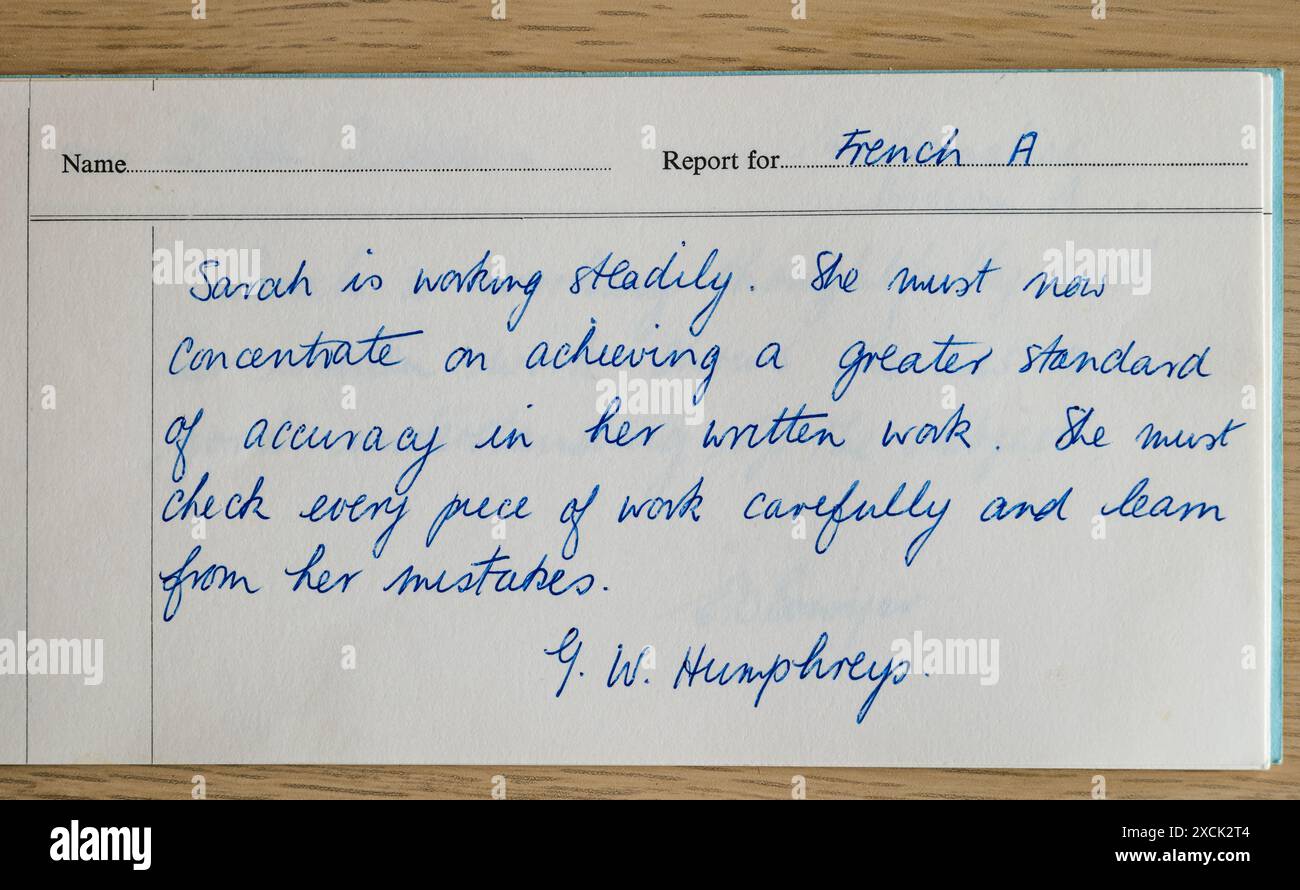 Name
Report for French A
Sarah is working steadily. She must now
concentrate on achieving a greater standard
of accuracy in her written work. She must
check every piece of work carefully and learn
from her mistakes.
G. W. Humphreys.
alamy
Image ID: 2XCK2T4
www.alamy.com